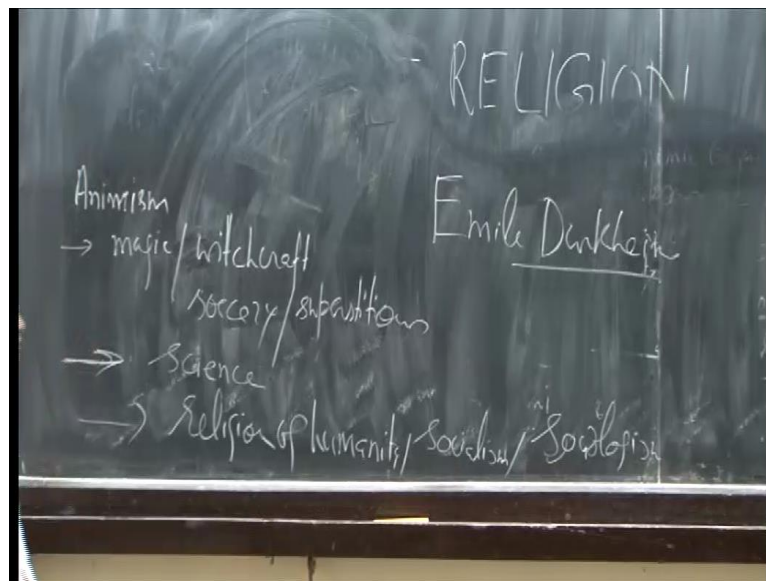 RELIGION
Emile Durkheim
Animism
→ magic/witchcraft
soccery/superstitions
→ Science
→ Religion of humanity/Socialism/Sociologism